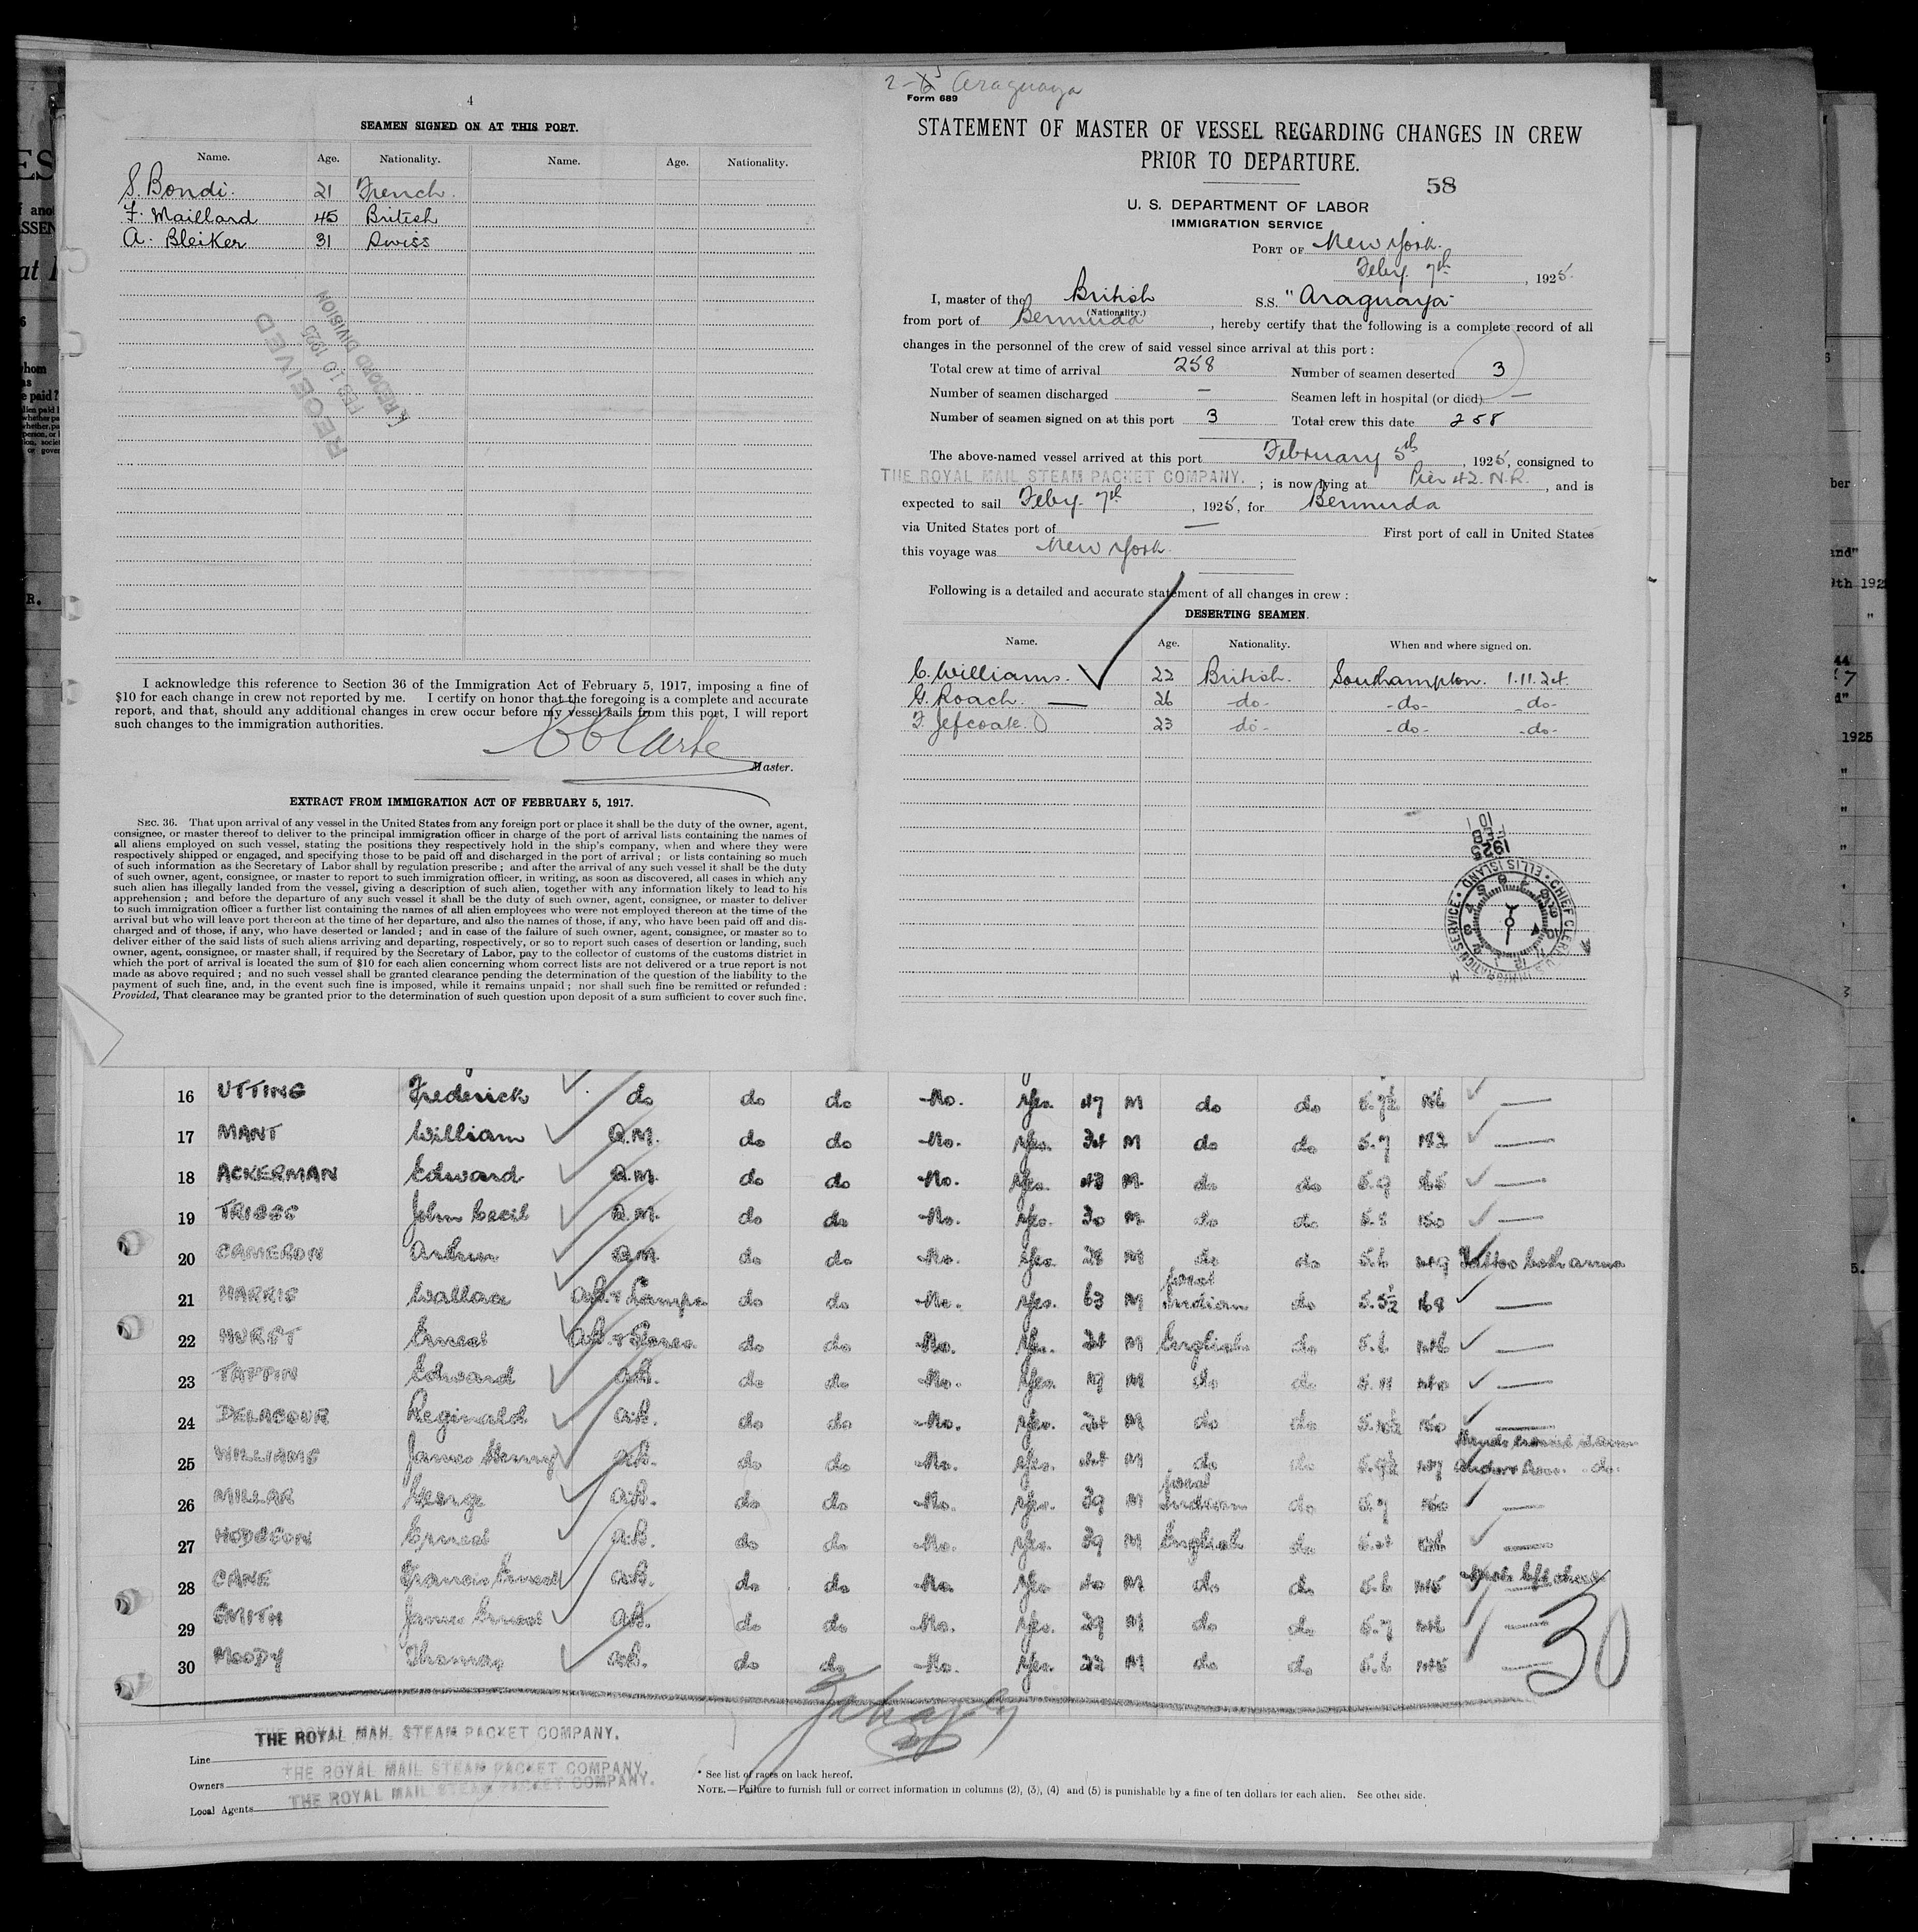 4
SEAMEN SIGNED ON AT THIS PORT.
Name. Age. Nationality. Name. Age. Nationality.
S. Bondi. 21 French.
F. Maillard 45 British
A. Bleiker 31 Swiss
RECEIVED
FEB 10 1925
RECORD DIVISION
I acknowledge this reference to Section 36 of the Immigration Act of February 5, 1917, imposing a fine of
$10 for each change in crew not reported by me. I certify on honor that the foregoing is a complete and accurate
report, and that, should any additional changes in crew occur before my vessel sails from this port, I will report
such changes to the immigration authorities.
Master.
EXTRACT FROM IMMIGRATION ACT OF FEBRUARY 5, 1917.
SEC. 36. That upon arrival of any vessel in the United States from any foreign port or place it shall be the duty of the owner, agent,
consignee, or master thereof to deliver to the principal immigration officer in charge of the port of arrival lists containing the names of
all aliens employed on such vessel, stating the positions they respectively hold in the ship's company, when and where they were
respectively shipped or engaged, and specifying those to be paid off and discharged in the port of arrival; or lists containing so much
of such information as the Secretary of Labor shall by regulation prescribe; and after the arrival of any such vessel it shall be the duty
of such owner, agent, consignee, or master to report to such immigration officer, in writing, as soon as discovered, all cases in which any
such alien has illegally landed from the vessel, giving a description of such alien, together with any information likely to lead to his
apprehension; and before the departure of any such vessel it shall be the duty of such owner, agent, consignee, or master to deliver
to such immigration officer a further list containing the names of all alien employees who were not employed thereon at the time of the
arrival but who will leave port thereon at the time of her departure, and also the names of those, if any, who have been paid off and dis-
charged and of those, if any, who have deserted or landed; and in case of the failure of such owner, agent, consignee, or master so to
deliver either of the said lists of such aliens arriving and departing, respectively, or so to report such cases of desertion or landing, such
owner, agent, consignee, or master shall, if required by the Secretary of Labor, pay to the collector of customs of the customs district in
which the port of arrival is located the sum of $10 for each alien concerning whom correct lists are not delivered or a true report is not
made as above required; and no such vessel shall be granted clearance pending the determination of the question of the liability to the
payment of such fine, and, in the event such fine is imposed, while it remains unpaid; nor shall such fine be remitted or refunded:
Provided, That clearance may be granted prior to the determination of such question upon deposit of a sum sufficient to cover such fine.
Araguaya
Form 689
STATEMENT OF MASTER OF VESSEL REGARDING CHANGES IN CREW
PRIOR TO DEPARTURE.
58
U. S. DEPARTMENT OF LABOR
IMMIGRATION SERVICE
PORT OF New York.
Feby. 7th, 1925.
I, master of the British S.S. "Araguaya"
(Nationality.)
from port of Bermuda, hereby certify that the following is a complete record of all
changes in the personnel of the crew of said vessel since arrival at this port:
Total crew at time of arrival 258 Number of seamen deserted 3
Number of seamen discharged — Seamen left in hospital (or died) —
Number of seamen signed on at this port 3 Total crew this date 258
The above-named vessel arrived at this port February 5th, 1925, consigned to
THE ROYAL MAIL STEAM PACKET COMPANY. ; is now lying at Pier 42. N.R., and is
expected to sail Feby. 7th, 1925, for Bermuda
via United States port of — First port of call in United States
this voyage was New York.
Following is a detailed and accurate statement of all changes in crew:
DESERTING SEAMEN.
Name. Age. Nationality. When and where signed on.
C. Williams. 22 British. Southampton. 1.11.24.
G. Roach. 26 -do- -do- -do-
F. Jefcoate. 23 -do- -do- -do-
1925
FEB
10
CHIEF CLERK U.S. IMMIGRATION SERVICE • ELLIS ISLAND •
16 UTTING Frederick do do do No. Yes. 47 M do do 5.7½ —
17 MANT William Q.M. do do No. Yes. 34 M do do 5.7 182 —
18 ACKERMAN Edward Q.M. do do No. Yes. 43 M do do 5.9 —
19 TRIGGS John Cecil Q.M. do do No. Yes. 30 M do do 5.8 150 —
20 CAMERON Arthur Q.M. do do No. Yes. 28 M do do 5.6 149 Tattoo both arms
21 HARRIS Wallace A.B. & Lamps do do No. Yes. 63 M West Indian do 5.5½ 168 —
22 HURST Ernest do do No. Yes. 24 M English do 5.6 146 —
23 TAPPIN Edward A.B. do do No. Yes. 19 M do do 5.11 140 —
24 DELACOUR Reginald A.B. do do No. Yes. 24 M do do 5.10½ 150 —
25 WILLIAMS James Henry A.B. do do No. Yes. 44 M do do 5.9½ 147
26 MILLAR George A.B. do do No. Yes. 39 M West Indian do 5.7 160 —
27 HODGSON Ernest A.B. do do No. Yes. 39 M English do 5.4 —
28 CANE Francis Ernest A.B. do do No. Yes 40 M do do 5.6 145
29 SMITH James Ernest A.B. do do No. Yes. 29 M do do 5.7 146 —
30 MOODY Thomas A.B. do do No. Yes. 22 M do do 5.6 145 —
30
THE ROYAL MAIL STEAM PACKET COMPANY.
Line
THE ROYAL MAIL STEAM PACKET COMPANY.
Owners
THE ROYAL MAIL STEAM PACKET COMPANY.
Local Agents
* See list of races on back hereof.
NOTE.—Failure to furnish full or correct information in columns (2), (3), (4) and (5) is punishable by a fine of ten dollars for each alien. See other side.